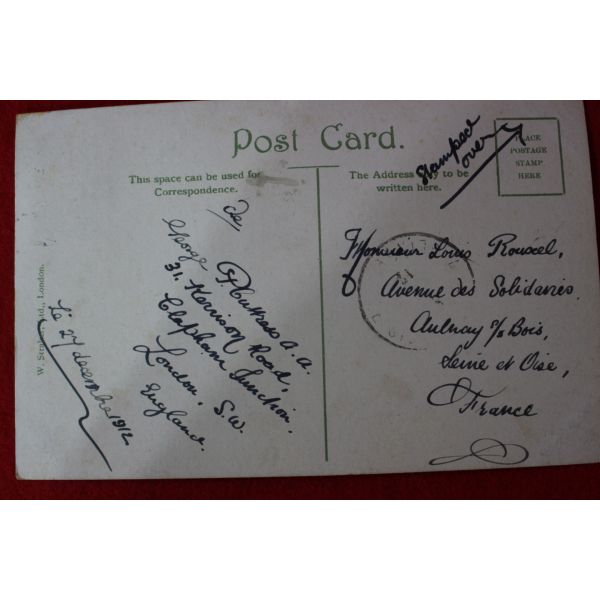 Post Card.
This space can be used for
Correspondence.
The Address only to be
written here.
PLACE
POSTAGE
STAMP
HERE
Stamped
over
De
George
31, Kerrison Road,
Clapham Junction,
London, S.W.
England.
Le 27 decembre 1912
W. Straker, Ltd., London.
Monsieur Louis Rouxel,
Avenue des Solidaires.
Aulnay s/s Bois,
Seine et Oise,
France